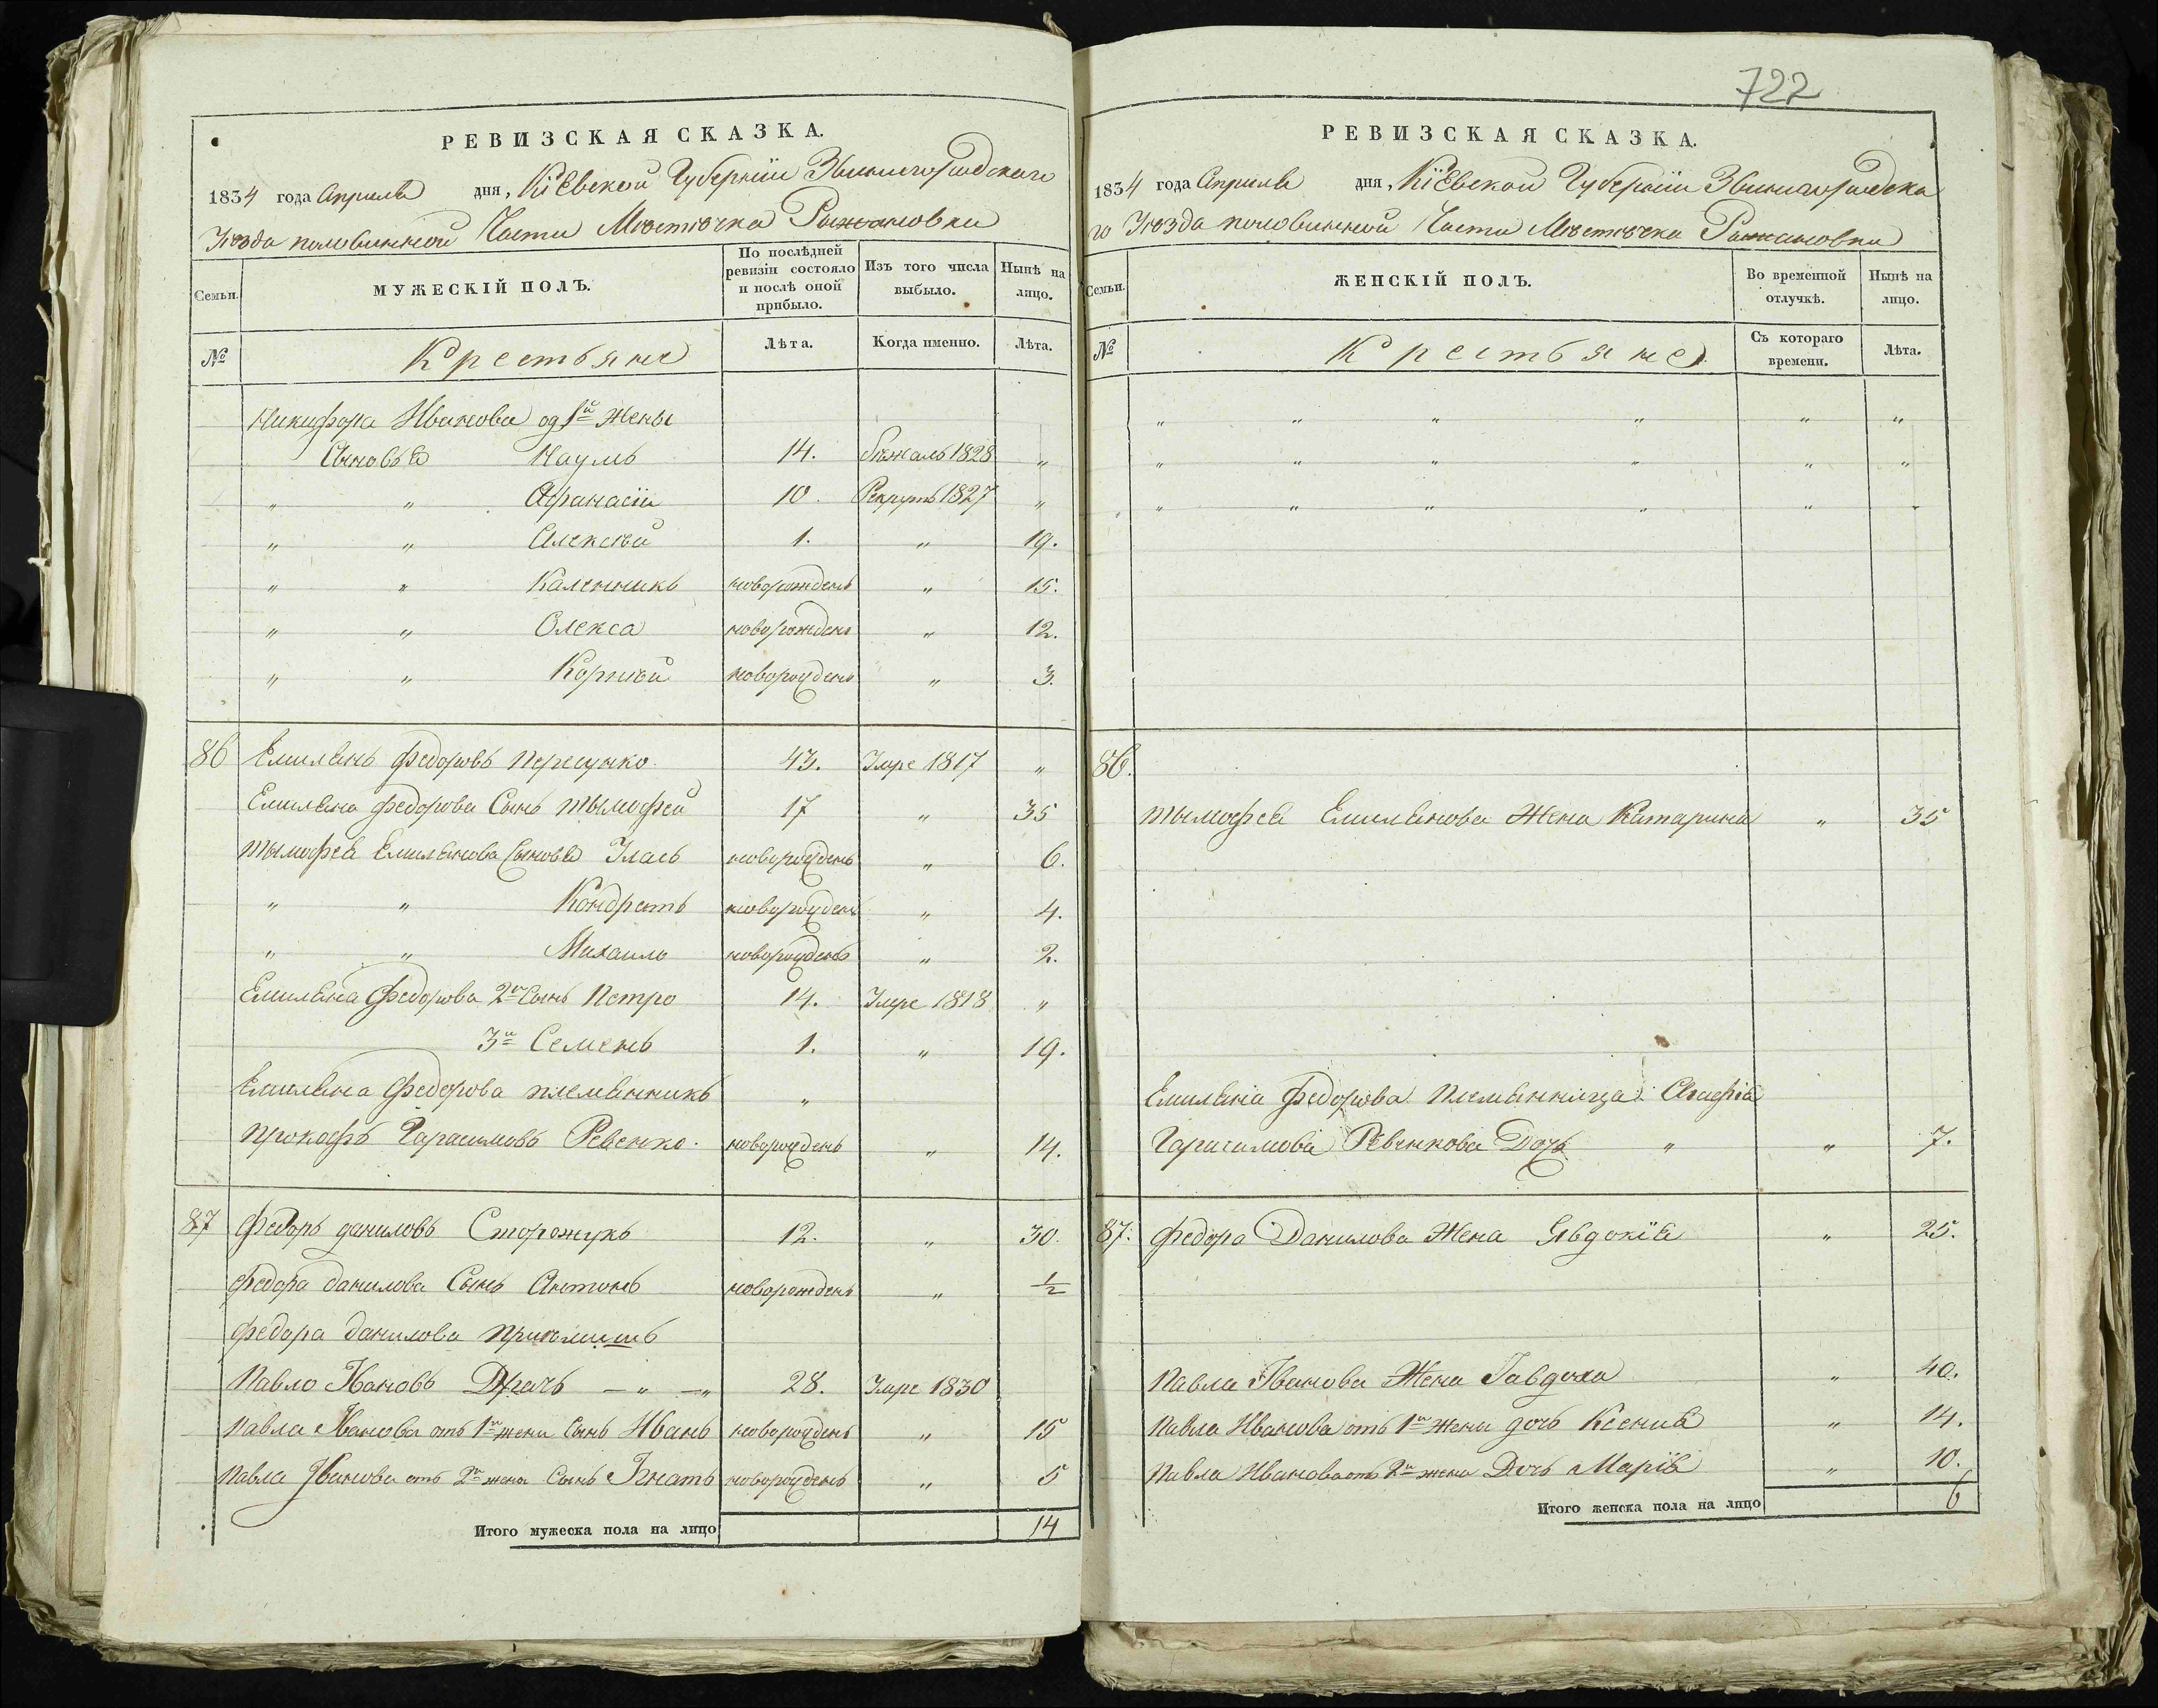 722
РЕВИЗСКАЯ СКАЗКА.
1834 года Апреля дня, Кіевской Губерніи Звенигородскаго
Уезда половинной Части Местечка Рыжановки
Семьи.
МУЖЕСКІЙ ПОЛЪ.
По послѣдней ревизіи состояло и послѣ оной прибыло.
Изъ того числа выбыло.
Нынѣ на лицо.
№
Крестьяне
Лѣта.
Когда именно.
Лѣта.
Никифора Иванова од 1й Жены
Сыновья Наумъ 14. бежалъ 1828 "
" " Афанасій 10. Рекрутъ 1827 "
" " Алексѣй 1. " 19.
" " Каленникъ новорожденъ " 15.
" " Олекса новорожденъ " 12.
" " Корнѣй новорожденъ " 3.
86 Емилянъ Федоровъ 43. Умре 1817 "
Емиляна Федорова Сынъ Тымофей 17 " 35
Тымофея Емилянова Сыновья Улась новорожденъ " 6.
" " Кондратъ новорожденъ " 4.
" " Михаило новорожденъ " 2.
Емиляна Федорова 2й Сынъ Петро 14. Умре 1818 "
3й Семенъ 1. " 19.
Емиляна Федорова племянникъ "
Прокофъ Гарасимовъ Ревенко. новорожденъ " 14.
87 Федоръ даниловъ Сторожукъ 12. " 30.
Федора данилова Сынъ Антонъ новорожденъ " 1/2
Федора данилова
Павло Ивановъ Драчъ — " — " 28. Умре 1830
Павла Иванова отъ 1й жени Сынъ Иванъ новорожденъ " 15
Павла Иванова отъ 2й жени Сынъ Игнатъ новорожденъ " 5
Итого мужеска пола на лицо 14
РЕВИЗСКАЯ СКАЗКА.
1834 года Апреля дня, Кіевской Губерніи Звенигородска
го Уезда половинной Части Местечка Рыжановки
Семьи.
ЖЕНСКІЙ ПОЛЪ.
Во временной отлучкѣ.
Нынѣ на лицо.
№
Крестьяне
Съ котораго времени.
Лѣта.
" " " " " "
" " " " " "
" " " " " "
86.
Тымофея Емилянова Жена Катарина " 35
Емиляна Федорова Племянница Агафія
Гарасимова Ревенкова Дочь " " 7.
87. Федора Данилова Жена Явдокія " 25.
Павла Иванова Жена Гавдоха " 40.
Павла Иванова отъ 1й Жени дочь Ксенія " 14.
Павла Иванова отъ 2й жени Дочь Марія " 10.
Итого женска пола на лицо 6